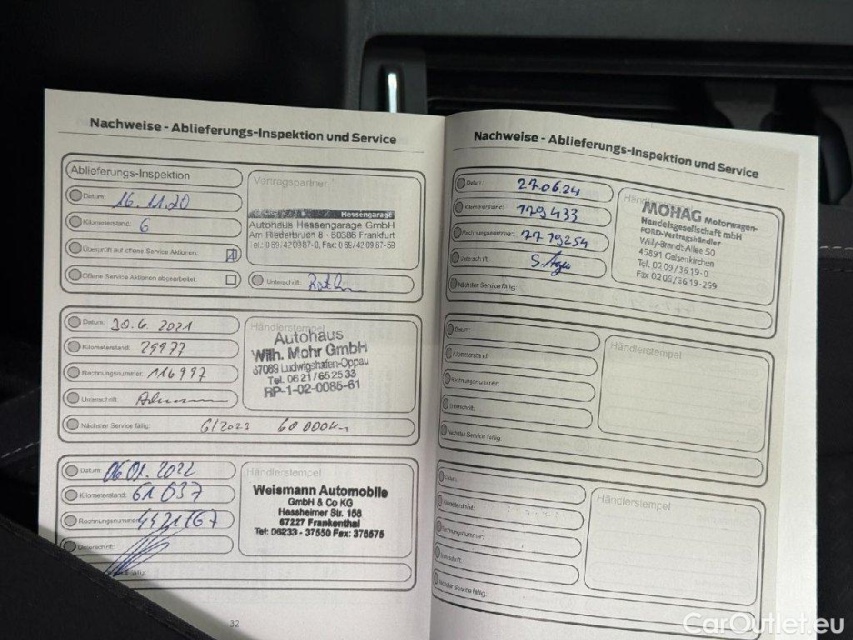 Nachweise - Ablieferungs-Inspektion und Service
Ablieferungs-Inspektion
Datum: 16.11.20
Kilometerstand: 6
Überprüft auf offene Service Aktionen:
Offene Service Aktionen abgearbeitet:
Vertragspartner
Hessengarage
Autohaus Hessengarage GmbH
Am Riederbruch 8 - 60386 Frankfurt
Tel.: 069/420987-0, Fax: 069/420987-59
Unterschrift:
Datum: 30.6.2021
Kilometerstand: 29977
Rechnungsnummer: 116997
Unterschrift:
Nächster Service fällig: 6/2023 60 000km
Händlerstempel
Autohaus
Wilh. Mohr GmbH
67069 Ludwigshafen-Oppau
Tel. 06 21 / 65 25 33
RP-1-02-0085-61
Datum: 06.01.2022
Kilometerstand: 61 037
Rechnungsnummer: 4921767
Unterschrift:
Händlerstempel
Weismann Automobile
GmbH & Co KG
Hessheimer Str. 158
67227 Frankenthal
Tel: 06233 - 37550 Fax: 375575
32
Nachweise - Ablieferungs-Inspektion und Service
Datum: 27.06.24
Kilometerstand: 179433
Rechnungsnummer: 7779254
Unterschrift:
Nächster Service fällig:
MOHAG Motorwagen-
Handelsgesellschaft mbH
FORD-Vertragshändler
Willy-Brandt-Allee 50
45891 Gelsenkirchen
Tel. 02 09/36 19-0
Fax 02 09/36 19-299
Datum:
Kilometerstand:
Rechnungsnummer:
Unterschrift:
Nächster Service fällig:
Händlerstempel
Datum:
Kilometerstand:
Rechnungsnummer:
Unterschrift:
Nächster Service fällig:
Händlerstempel
CarOutlet.eu